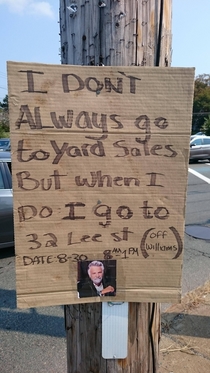 I DON'T
ALWAYS go
to Yard Sales
But when I
Do I go to
32 Lee st (off Williams)
DATE: 8-30 8AM 1PM